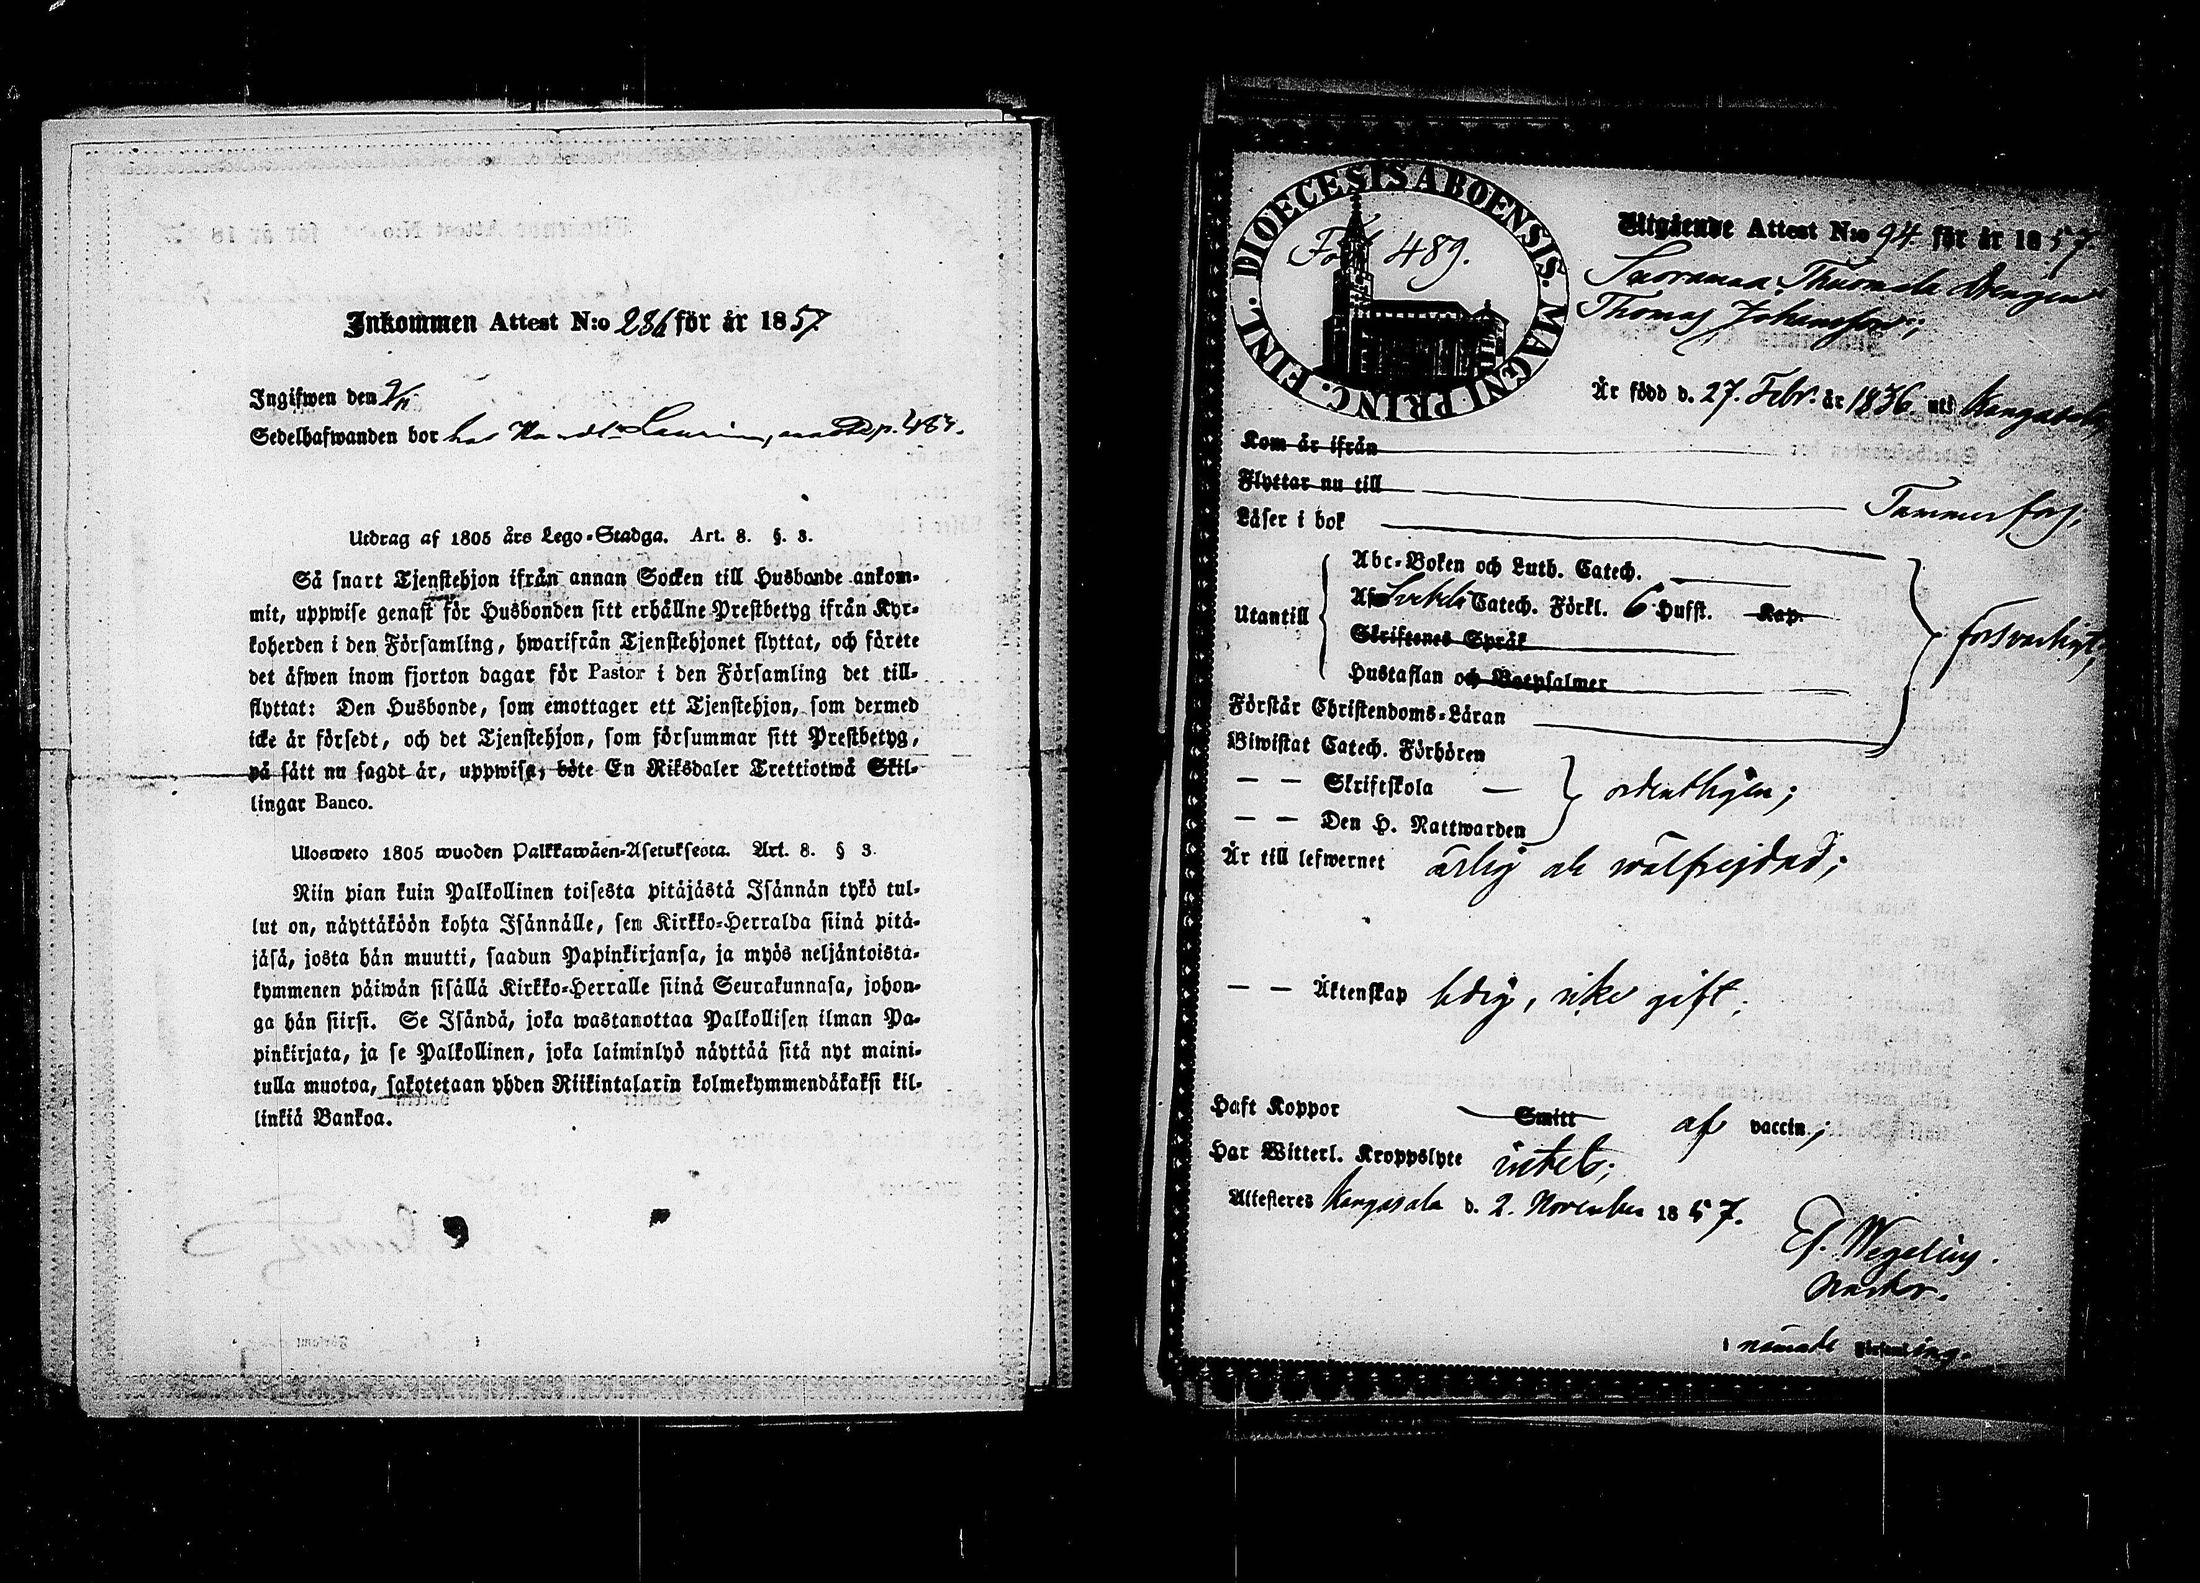 Inkommen Attest N:o 286 för år 1857.
Ingifwen den 9/11
Sedelhafwanden bor hos Laurin, p. 484.
Utdrag af 1805 års Lego-Stadga. Art. 8. §. 3.
Så snart Tjenstehjon ifrån annan Socken till Husbonde ankom-
mit, uppwise genast för Husbonden sitt erhållne Prestbetyg ifrån Kyr-
koherden i den Församling, hwarifrån Tjenstehjonet flyttat, och förete
det äfwen inom fjorton dagar för Pastor i den Församling det till-
flyttat: Den Husbonde, som emottager ett Tjenstehjon, som dermed
icke är försedt, och det Tjenstehjon, som försummar sitt Prestbetyg,
på sätt nu sagdt är, uppwisa, böte En Riksdaler Trettiotwå Skil-
lingar Banco.
Ulosweto 1805 wuoden Palkkawäen-Asetuksesta. Art. 8. § 3.
Niin pian kuin Palkollinen toisesta pitäjästä Isännän tykö tul-
lut on, näyttäköön kohta Isännälle, sen Kirkko-Herralda siinä pitä-
jäsä, josta hän muutti, saadun Papinkirjansa, ja myös neljäntoista-
kymmenen päiwän sisällä Kirkko-Herralle siinä Seurakunnasa, johon-
ga hän siirsi. Se Isändä, joka wastanottaa Palkollisen ilman Pa-
pinkirjata, ja se Palkollinen, joka laiminlyö näyttää sitä nyt maini-
tulla muotoa, sakotetaan yhden Riikintalarin kolmekymmendäkaksi kil-
linkiä Bankoa.
DIOECESIS ABOENSIS. MAGNI PRINC. FINL.
Fol. 489.
Utgående Attest N:o 94. för år 1857.
Suorama Thuomala Drengen
Thomas Johansson;
Är född d. 27. Febr. år 1836. uti Kangasala,
Kom är ifrån
Flyttar nu till Tammerfors;
Läser i bok
Utantill
Abc-Boken och Luth. Catech.
Af Svebeli Catech. Förkl. 6 Hufst. Kap.
Skriftenes Språk
Hustaflan och Botpsalmer
försvarligt;
Förstår Christendoms-Läran
Biwistat Catech. Förhören
— — Skriftskola —
— — Den H. Nattwarden
ordentligen;
Är till lefwernet ärlig och wälfrejdad;
— — Äktenskap ledig, icke gift.
Haft Koppor Smitt af vaccin;
Har Witterl. Kroppslyte intet;
Attesteres Kangasala d. 2. November 1857.
Ef. Wegelius.
Pastor.
i nämnde Församling.